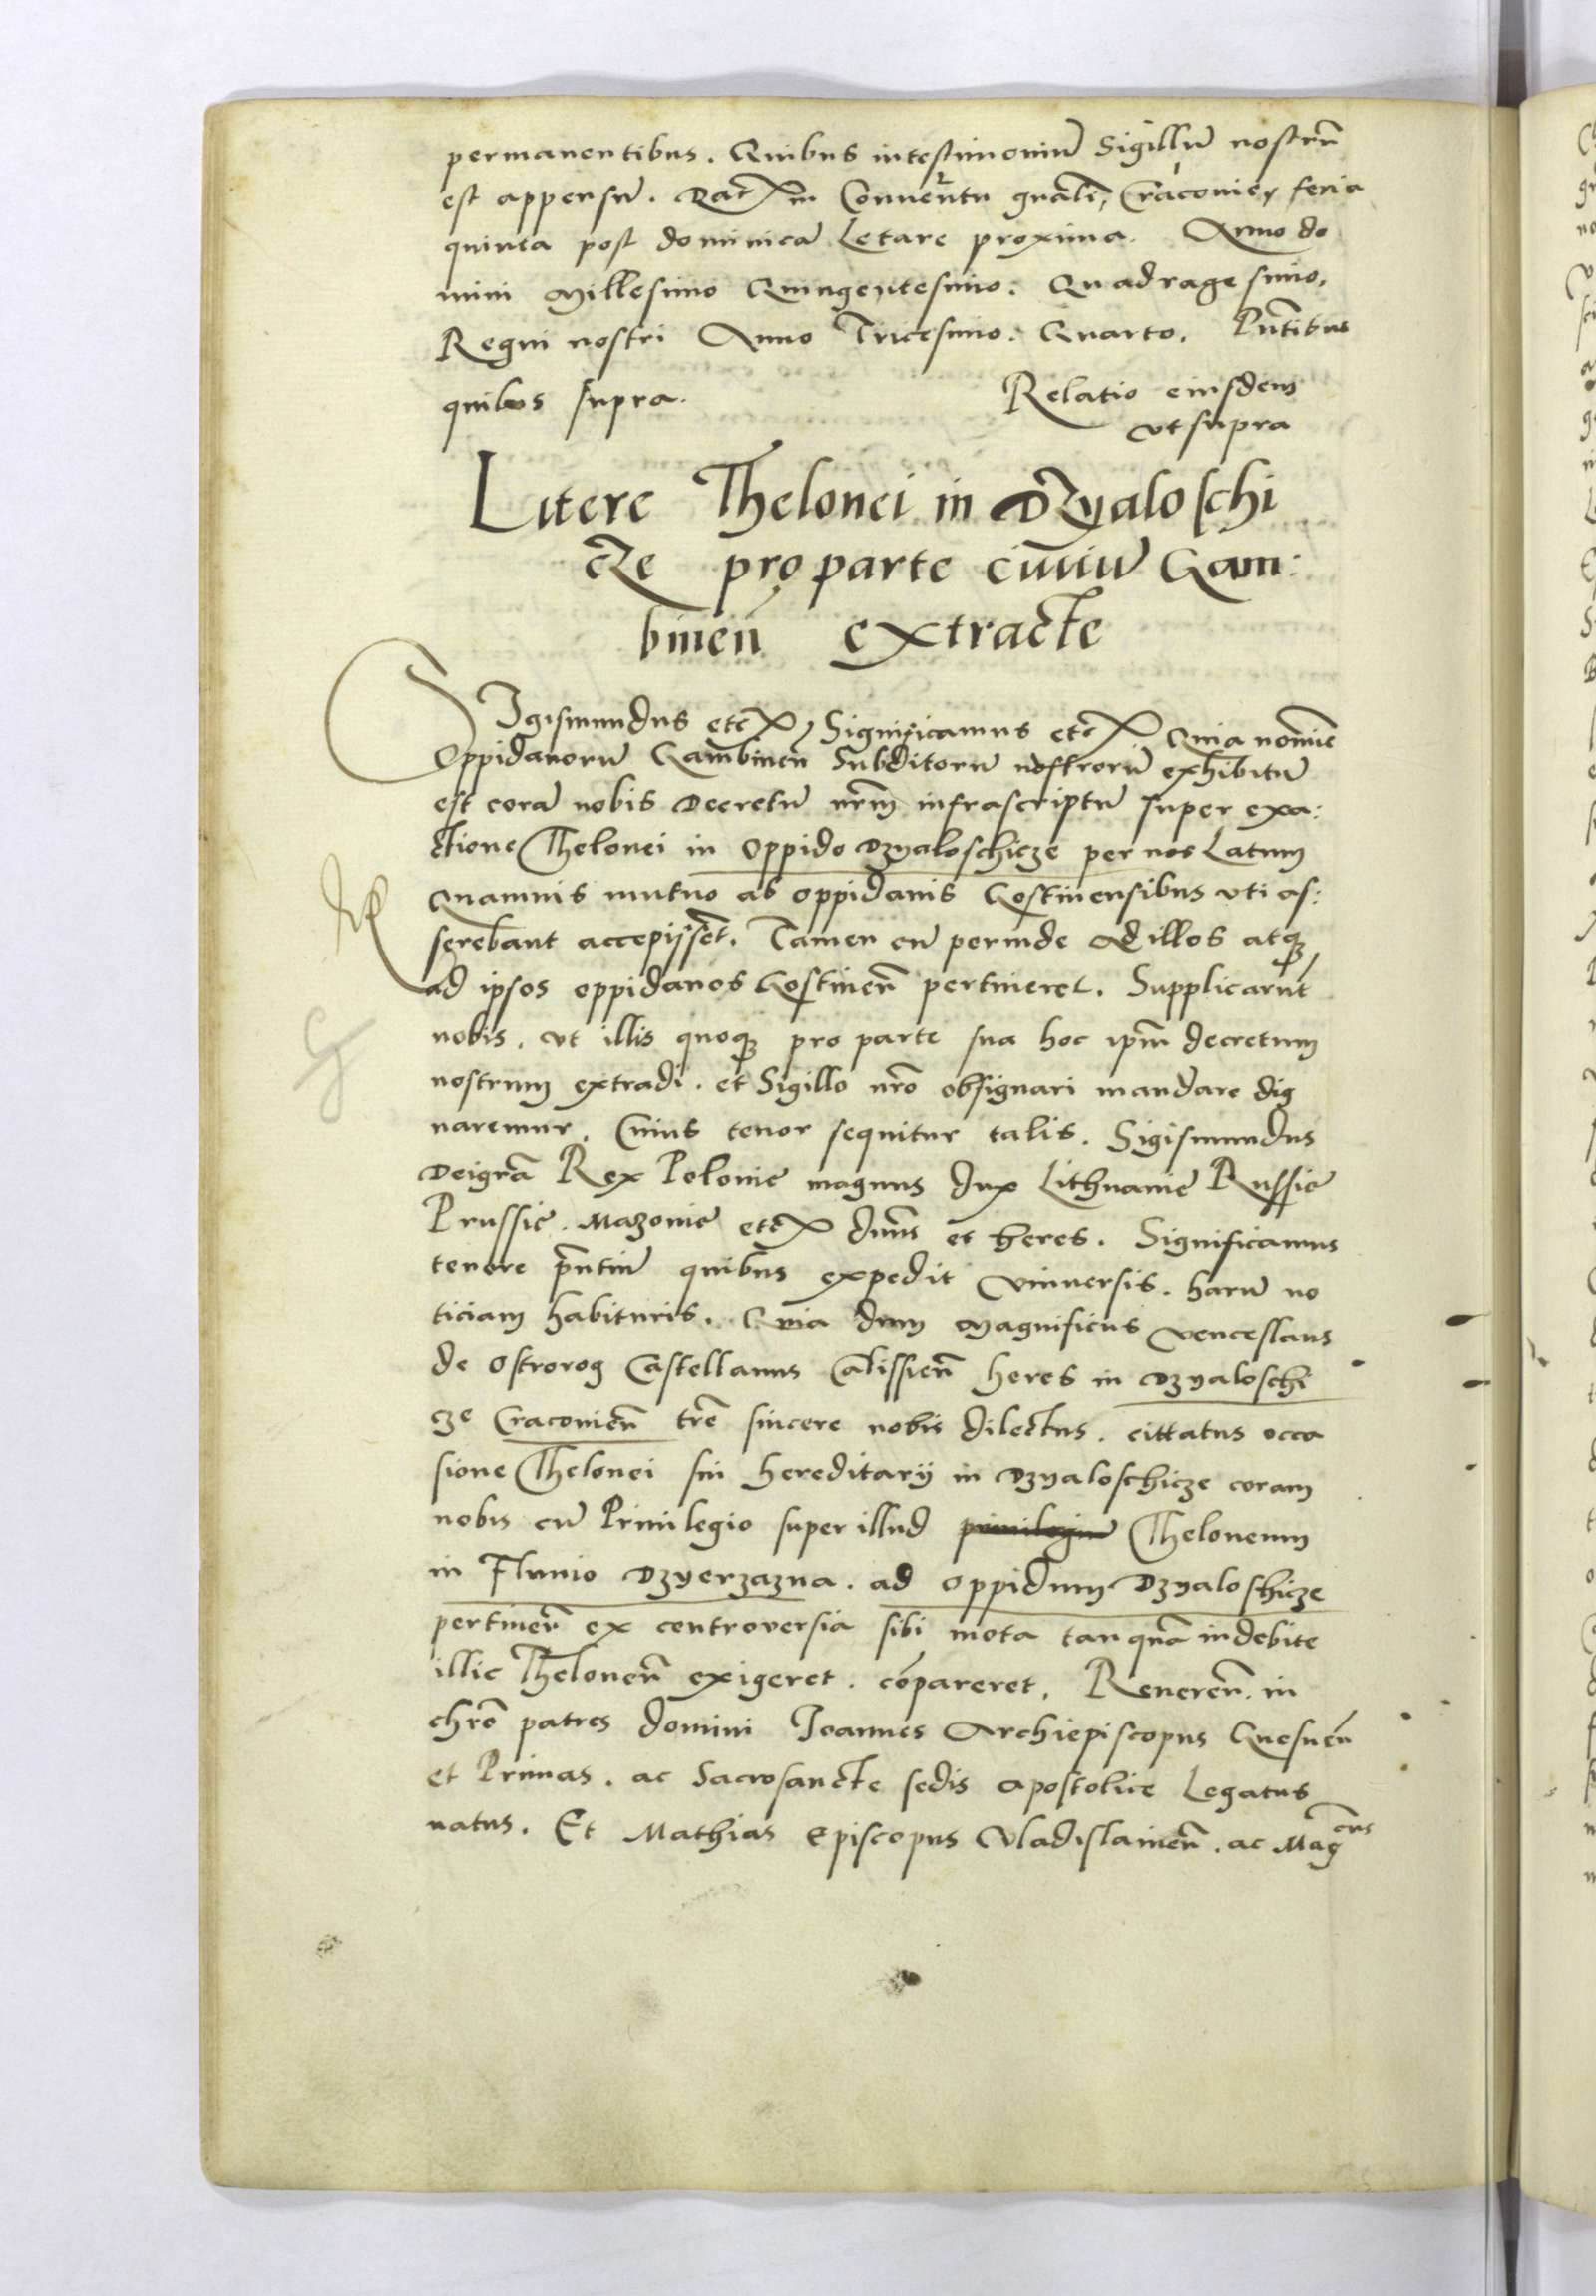 permanentibus. Quibus intestimoniũ Sigillũ nostrũ
est appensũ. Dat in Conuentu gnãli, Cracouie, feria
quinta post dominicã Letare proxima. Anno do
mini Millesimo Quingentesimo. Quadragesimo,
Regni nostri Anno Tricesimo. Quarto. Pñtibus
quibus supra.
Relatio eiusdem
vt supra
Litere Thelonei in Dzyaloschi
cze pro parte ciuiũ Gam:
bineñ extracte
Sigismundus etc. Significamus etc. Quia nomine
Oppidanorũ Gambineñ Subditorũ nostrorũ exhibitũ
est corã nobis Decretũ nrm̃ infrascriptũ super exa:
ctione Thelonei in Oppido Dzyaloschicze per nos Latum
Quamuis mutuo ab oppidanis Gostinensibus vti as:
serebant accepissẽt. Tamen cũ perinde ad illos atq
ad ipsos oppidanos Gostineñ pertineret. Supplicarũt
nobis. vt illis quoq pro parte sua hoc ipm̃ decretum
nostrum extradi. et Sigillo nrõ obsignari mandare dig
naremur. Cuius tenor sequitur talis. Sigismundus
Deigrã Rex Polonie magnus dux Lithuanie Russie
Prussie. Mazouie etc. dnũs et heres. Significamus
tenore pñtiũ quibus expedit vniuersis. harũ no
ticiam habituris. Quia dum Magnificus Venceslaus
de Ostrorog Castellanus Calissieñ heres in Dzyaloschi
cze Cracouieñ trẽ sincere nobis dilectus. cittatus occa
sione Thelonei sui hereditarij in Dzyaloschicze coram
nobis cũ Priuilegio super illud priuilegiũ Theloneum
in Fluuio Dzyerzazna. ad oppidum Dzyaloschicze
pertineñ ex controuersia sibi mota tanquã indebite
illic Theloneũ exigeret. cõpareret. Reuereñ. in
chrõ patres domini Joannes Archiepiscopus Gnesneñ
et Primas. ac Sacrosancte sedis Apostolice Legatus
natus. Et Mathias Episcopus Vladislauieñ. ac Magcus